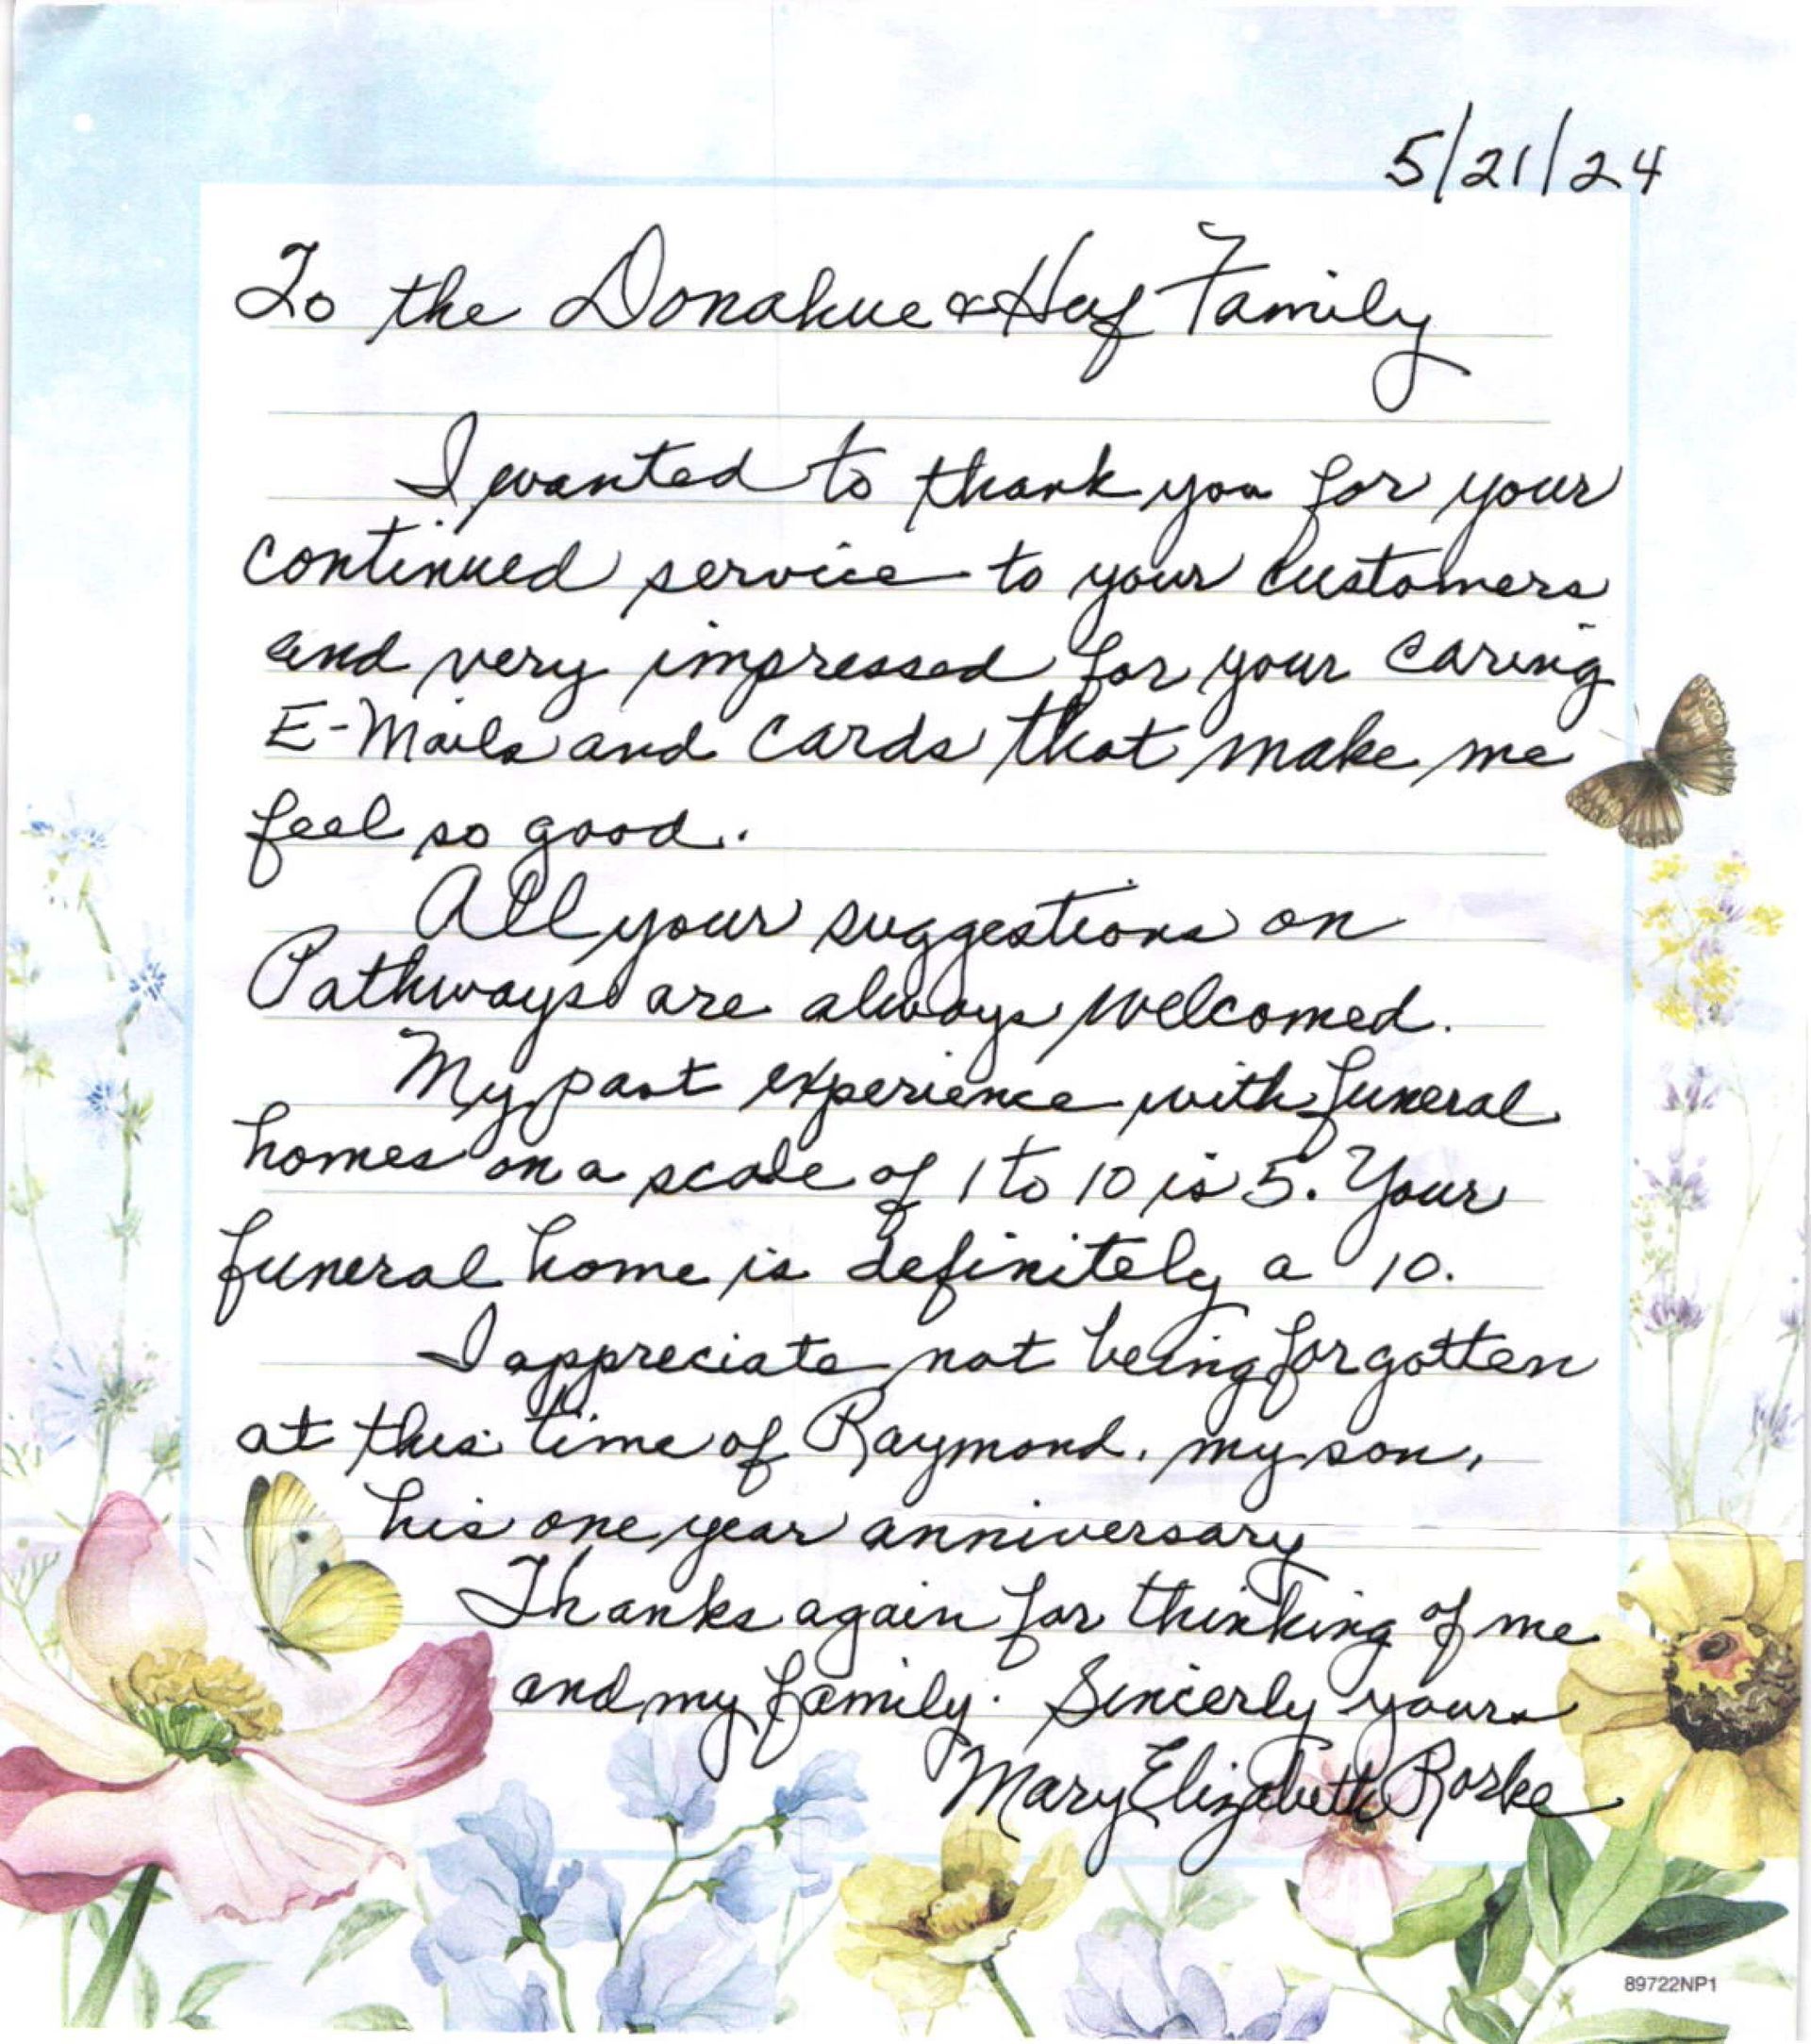 5/21/24
To the Donahue & Hey Family
I wanted to thank you for your
continued service to your customers
and very impressed for your caring
E-Mails and cards that make me
feel so good.
All your suggestions on
Pathways are always welcomed.
My past experience with funeral
homes on a scale of 1 to 10 is 5. Your
funeral home is definitely a 10.
I appreciate not being forgotten
at this time of Raymond, my son,
his one year anniversary
Thanks again for thinking of me
and my family. Sincerly yours
Mary Elizabeth Rorke
89722NP1